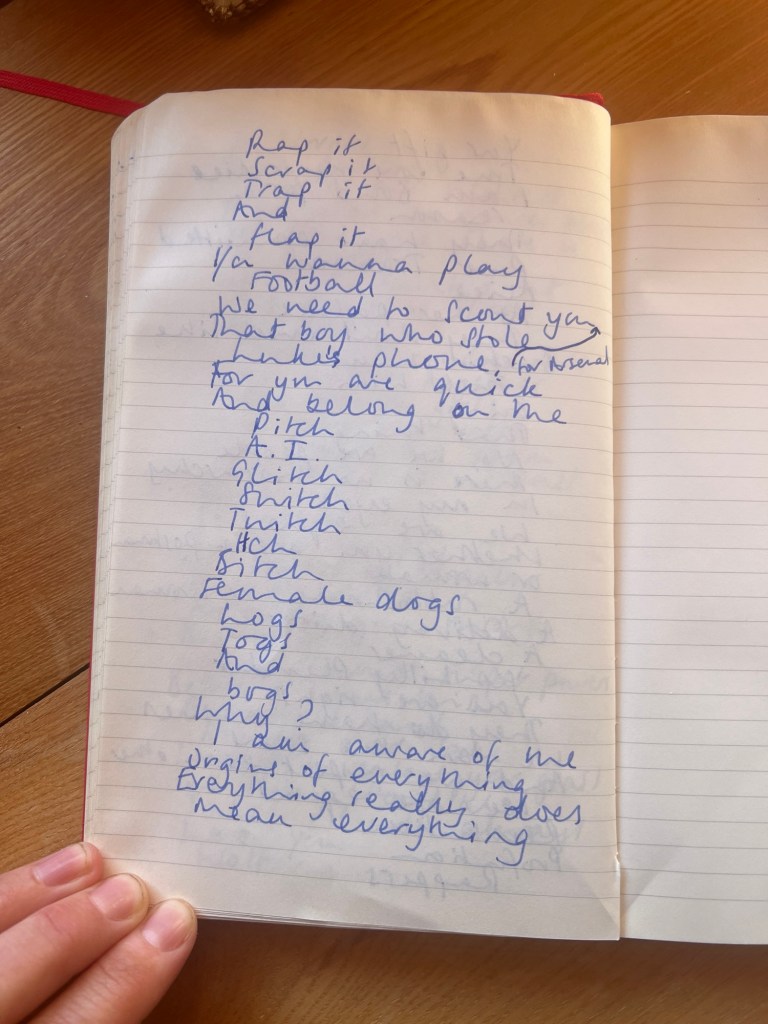 Rap it
Scrap it
Trap it
And
flap it
Ya wanna play
Football
We need to scout you
That boy who stole
Luke's phone, for Arsenal
For you are quick
And belong on the
Pitch
A.I.
Glitch
Snitch
Twitch
Itch
Bitch
Female dogs
Logs
Togs
And
bogs
Why?
I am aware of the
orgins of everything
Everything really does
mean everything
Rappers